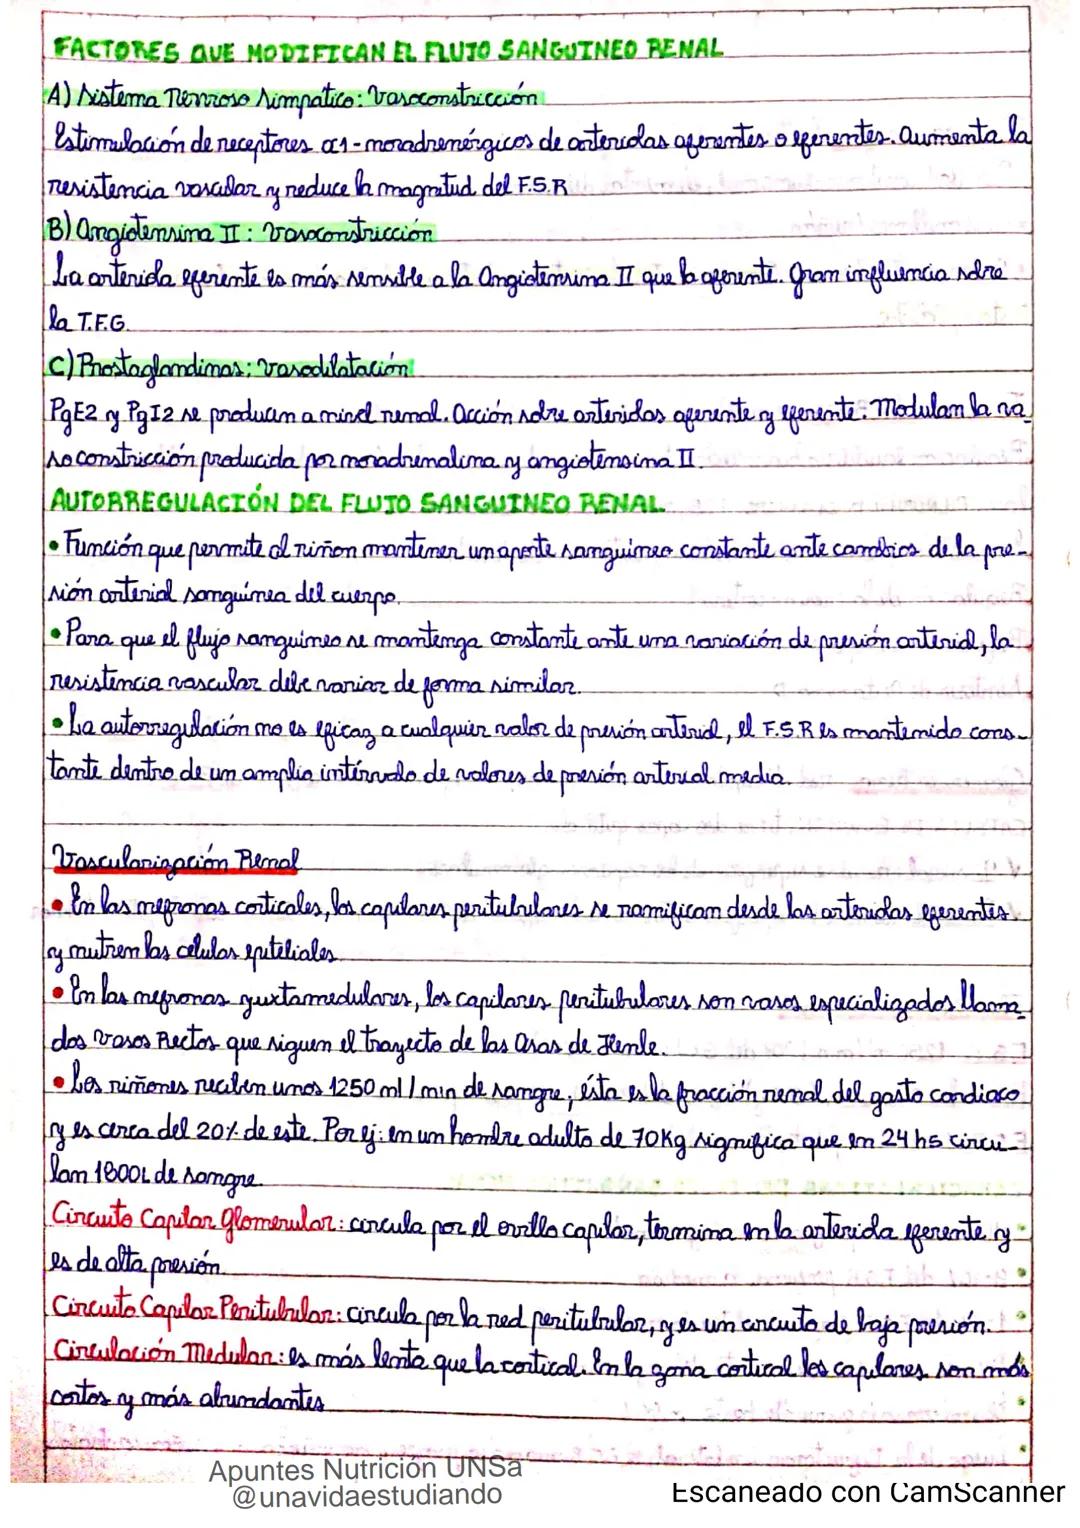 FACTORES QUE MODIFICAN EL FLUJO SANGUINEO RENAL
A) Sistema Nervioso Simpatico: Vasoconstricción
Estimulación de receptores α1-noradrenérgicos de arteriolas aferentes o eferentes. Aumenta la
resistencia vascular y reduce la magnitud del F.S.R
B) Angiotensina II: Vasoconstricción
La arteriola eferente es más sensible a la Angiotensina II que la aferente. Gran influencia sobre
la T.F.G.
C) Prostaglandinas: Vasodilatación
PgE2 y PgI2 se producen a nivel renal. Acción sobre arteriolas aferente y eferente. Modulan la va
soconstricción producida por noradrenalina y angiotensina II.
AUTORREGULACIÓN DEL FLUJO SANGUINEO RENAL
• Función que permite al riñon mantener un aporte sanguineo constante ante cambios de la pre-
sión arterial sanguínea del cuerpo.
• Para que el flujo sanguineo se mantenga constante ante una variación de presión arterial, la
resistencia vascular debe variar de forma similar.
• La autorregulación no es eficaz a cualquier valor de presión arterial, el F.S.R es mantenido cons-
tante dentro de un amplio intérvalo de valores de presión arterial media.
Vascularización Renal
• En las nefronas corticales, los capilares peritubulares se ramifican desde las arteriolas eferentes
y nutren las celulas epiteliales
• En las nefronas yuxtamedulares, los capilares peritubulares son vasos especializados llama_
dos Vasos Rectos que siguen el trayecto de las Asas de Henle.
• Los riñones reciben unos 1250 ml/min de sangre, ésta es la fracción renal del gasto cardiaco
y es cerca del 20% de este. Por ej: en un hombre adulto de 70Kg significa que en 24 hs circu_
lan 1800L de sangre
Circuito Capilar Glomerular: circula por el ovillo capilar, termina en la arteriola eferente y
es de alta presión.
Circuito Capilar Peritubular: circula por la red peritubular, y es un circuito de baja presión.
Circulación Medular: es más lenta que la cortical. En la zona cortical los capilares son más
cortos y más abundantes
Apuntes Nutrición UNSa
@unavidaestudiando
Escaneado con CamScanner